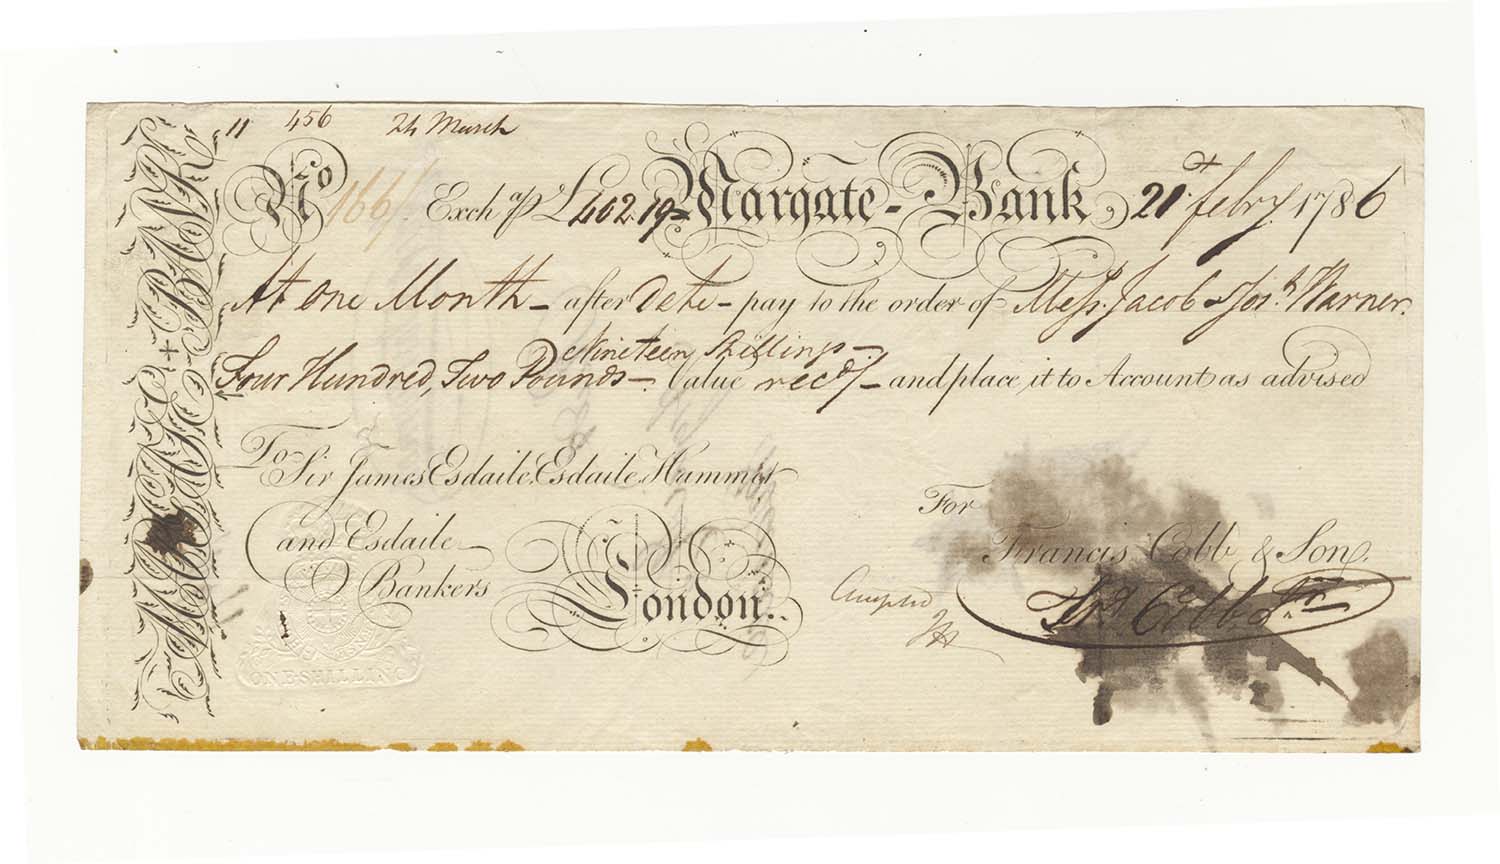 11 456 24 March
No 166/ Exch. for £402.19= Margate-Bank, 21st febry 1786
At One Month - after Date - pay to the order of Messs. Jacob & Josh. Warner.
Nineteen Shillings -
Four Hundred, Two Pounds - Value rec'd/- and place it to Account as advised
To Sir James Esdaile, Esdaile, Hammet
and Esdaile
Bankers London.
For
Francis Cobb & Son,
Frs Cobb
ONE SHILLING
MARGATE + BANK